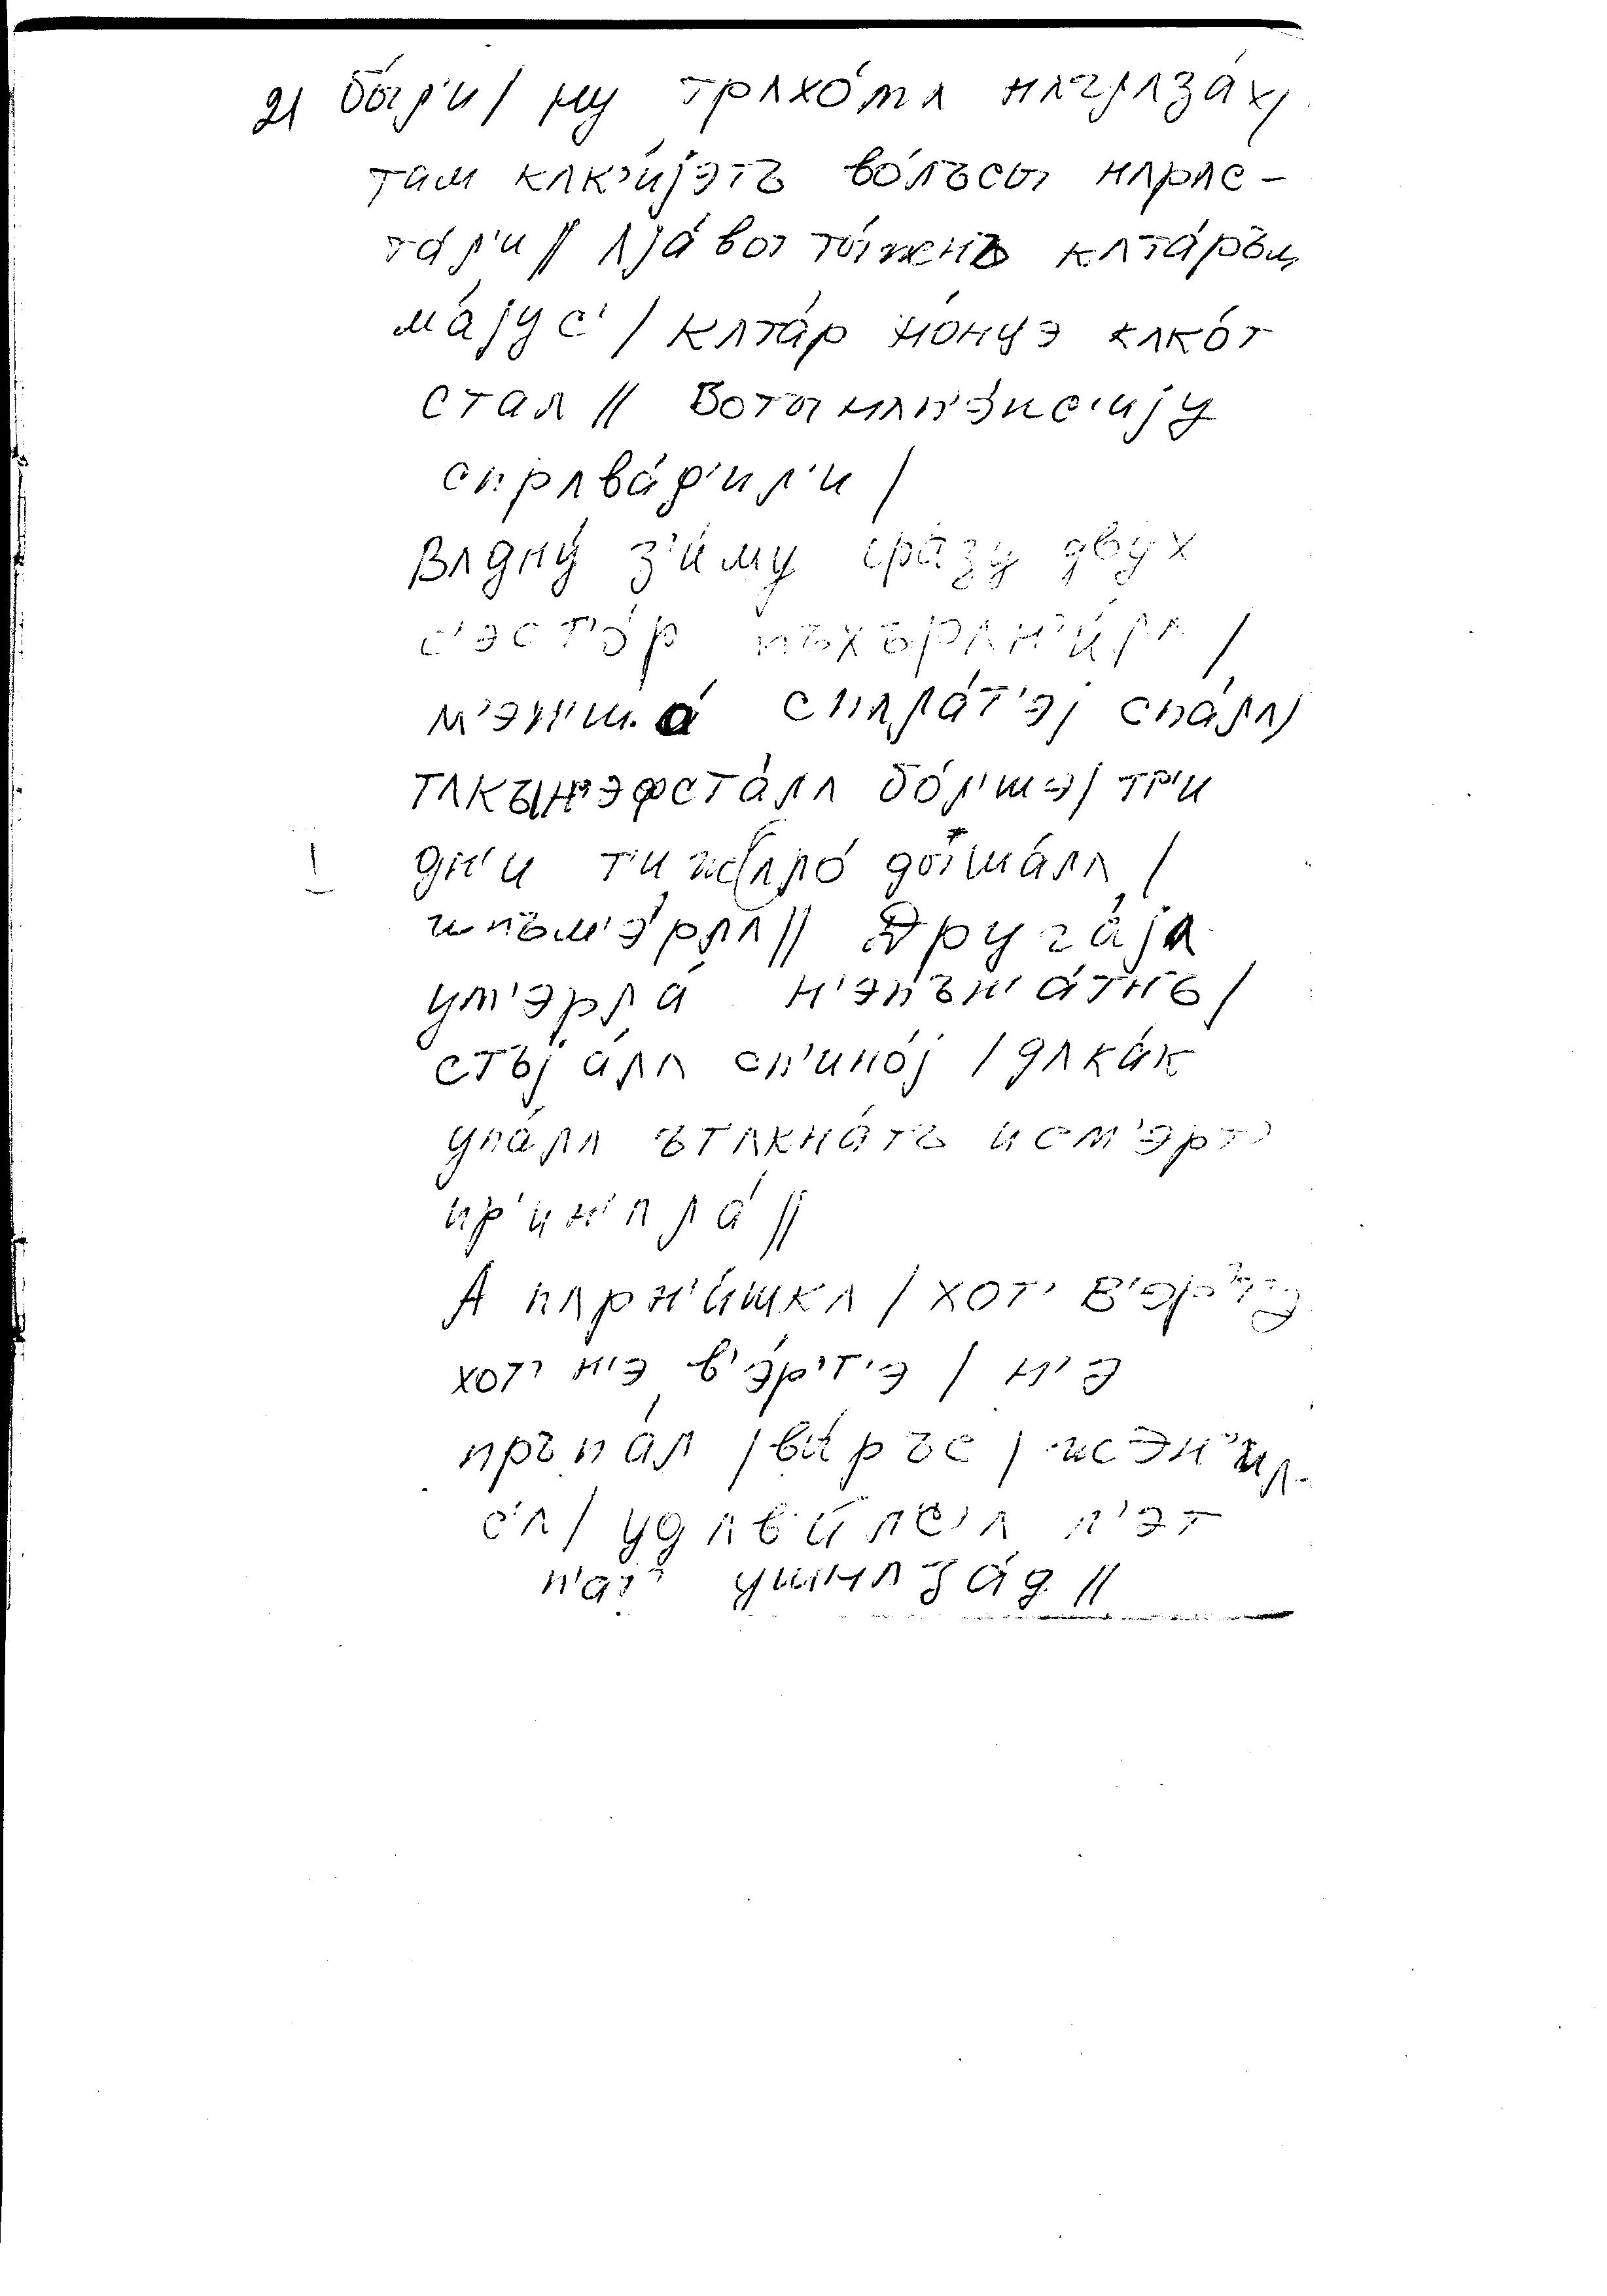 21 бы́л'и / ну трʌхо́мʌ нʌглʌза́х /
там кʌк'и́jэтъ во́лъсы нʌрʌс-
та́л'и // ʌjа́ вот ты́жнъ кʌта́ръм
ма́jус' / кʌта́р йо́нцэ кʌко́т
стал // Вот ы нʌп'э́нс'иjу
спрʌва́д'ил'и /
Вʌдну́ з'и́му сра́зу двух
с'эст'о́р пъхърʌн'и́лʌ /
м'эн'ша́ спʌла́т'эj спа́лʌ /
тʌкъын'эфста́лʌ бо́л'шэ / тр'и
дн'и т'иж(ʌло́ ды́шалʌ /
ипъм'э́рлʌ // Друга́jʌ
ум'эрла́ н'эпън'а́тнъ /
стъjа́лʌ сп'ино́j / дʌка́к
упа́лʌ ътʌкна́тъ исм'эрт'
пр'ин'ʌла́ //
А пʌрн'и́шкʌ / хот' в'э́р'т'э
хот' н'э в'э́р'т'э / н'э
пръпа́л / вы́ръс / жэн'и́л-
с'ʌ / удʌви́лс'ʌ л'эт
п'ат' ушнʌза́д //